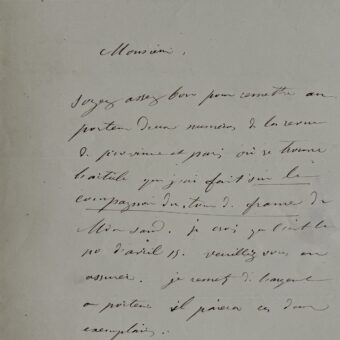 Monsieur,
soyez assez bon pour remettre au
porteur deux numéros de la revue
de province et paris où se trouve
l'article que j'ai fait sur le
compagnon du tour de france de
Mme sand. je crois que c'est le
no d'avril 15. veuillez vous en
assurer. je remets de l'argent
au porteur il paiera ces deux
exemplaires.